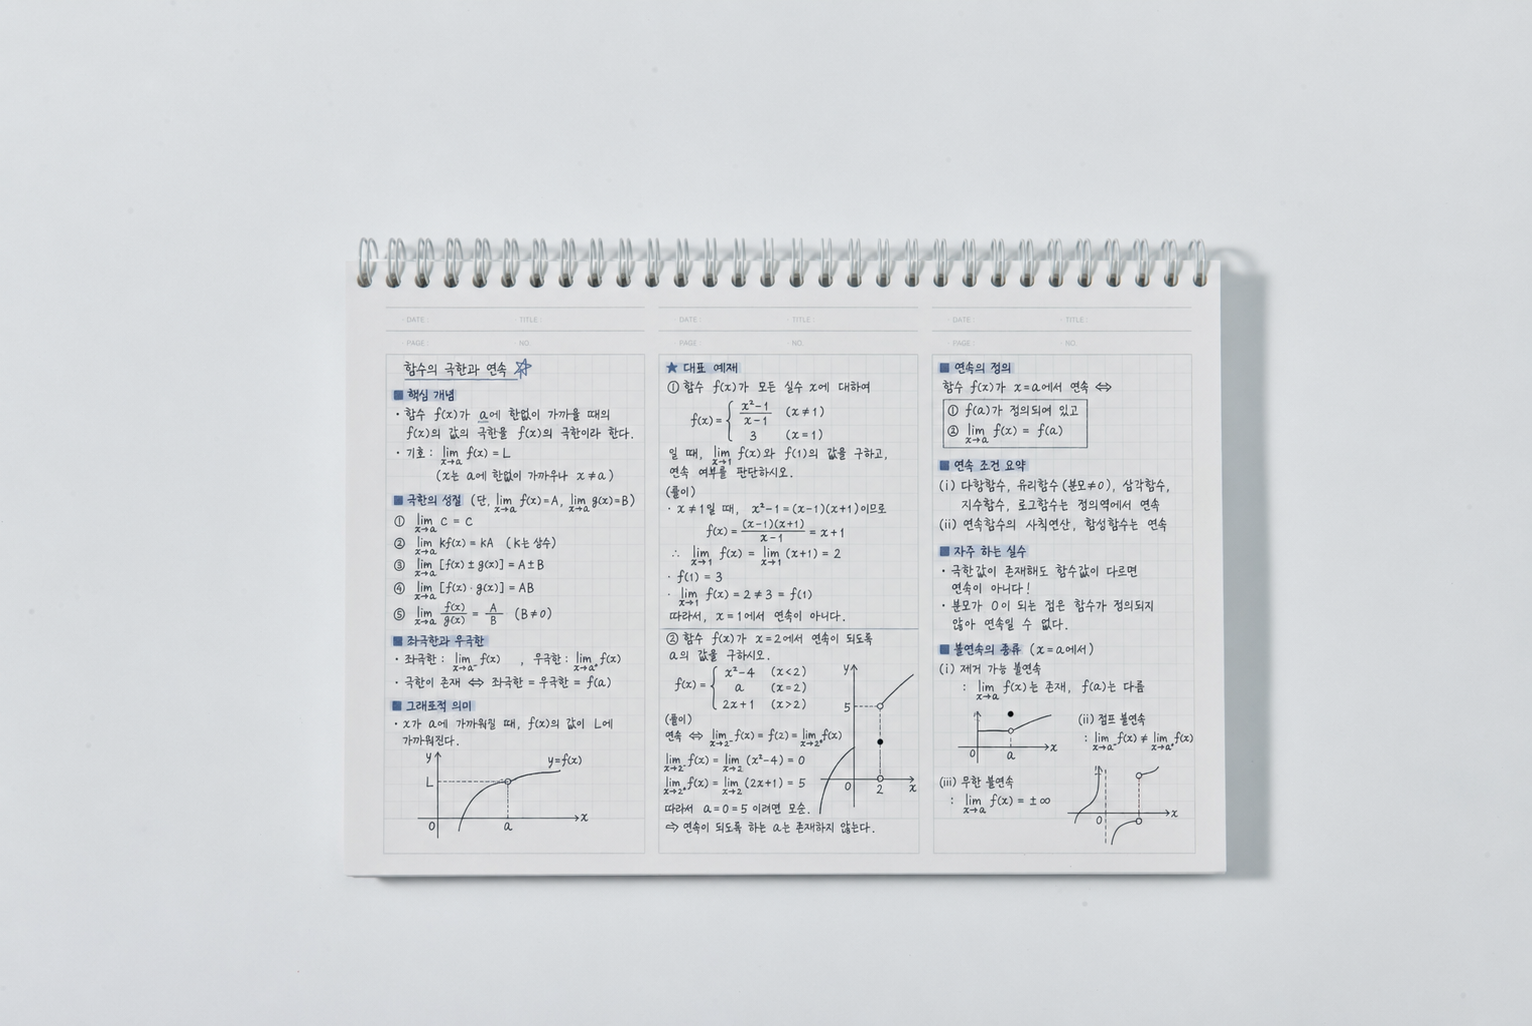 · DATE :
TITLE :
· PAGE :
· NO.
함수의 극한과 연속 ☆
■ 핵심 개념
· 함수 f(x)가 a에 한없이 가까울 때의
f(x)의 값의 극한을 f(x)의 극한이라 한다.
· 기호 : lim x→a f(x) = L
(x는 a에 한없이 가까우나 x ≠ a)
■ 극한의 성질 (단, lim x→a f(x) = A, lim x→a g(x) = B)
① lim x→a c = c
② lim x→a kf(x) = kA (k는 상수)
③ lim x→a [f(x) ± g(x)] = A ± B
④ lim x→a [f(x) · g(x)] = AB
⑤ lim x→a f(x)/g(x) = A/B (B ≠ 0)
■ 좌극한과 우극한
· 좌극한 : lim x→a⁻ f(x) , 우극한 : lim x→a⁺ f(x)
· 극한이 존재 ⇔ 좌극한 = 우극한 = f(a)
■ 그래프적 의미
· x가 a에 가까워질 때, f(x)의 값이 L에
가까워진다.
y
y=f(x)
L
0
a
x
· DATE :
TITLE :
· PAGE :
· NO.
★ 대표 예재
① 함수 f(x)가 모든 실수 x에 대하여
f(x) = { x²−1 / x−1 (x ≠ 1)
3 (x = 1)
일 때, lim x→1 f(x)와 f(1)의 값을 구하고,
연속 여부를 판단하시오.
(풀이)
· x ≠ 1일 때, x²−1 = (x−1)(x+1)이므로
f(x) = (x−1)(x+1) / x−1 = x+1
∴ lim x→1 f(x) = lim x→1 (x+1) = 2
· f(1) = 3
· lim x→1 f(x) = 2 ≠ 3 = f(1)
따라서, x = 1에서 연속이 아니다.
② 함수 f(x)가 x = 2에서 연속이 되도록
a의 값을 구하시오.
f(x) = { x²−4 (x < 2)
a (x = 2)
2x+1 (x > 2)
(풀이)
연속 ⇔ lim x→2⁻ f(x) = f(2) = lim x→2⁺ f(x)
lim x→2⁻ f(x) = lim x→2 (x²−4) = 0
lim x→2⁺ f(x) = lim x→2 (2x+1) = 5
따라서 a = 0 = 5 이려면 모순.
⇨ 연속이 되도록 하는 a는 존재하지 않는다.
y
5
0
2
x
· DATE :
TITLE :
· PAGE :
· NO.
■ 연속의 정의
함수 f(x)가 x = a에서 연속 ⇔
① f(a)가 정의되어 있고
② lim x→a f(x) = f(a)
■ 연속 조건 요약
(i) 다항함수, 유리함수 (분모≠0), 삼각함수,
지수함수, 로그함수는 정의역에서 연속
(ii) 연속함수의 사칙연산, 합성함수는 연속
■ 자주 하는 실수
· 극한값이 존재해도 함수값이 다르면
연속이 아니다!
· 분모가 0이 되는 점은 함수가 정의되지
않아 연속일 수 없다.
■ 불연속의 종류 (x = a에서)
(i) 제거 가능 불연속
: lim x→a f(x)는 존재, f(a)는 다름
0
a
x
(ii) 점프 불연속
: lim x→a⁻ f(x) ≠ lim x→a⁺ f(x)
(iii) 무한 불연속
: lim x→a f(x) = ±∞
0
x